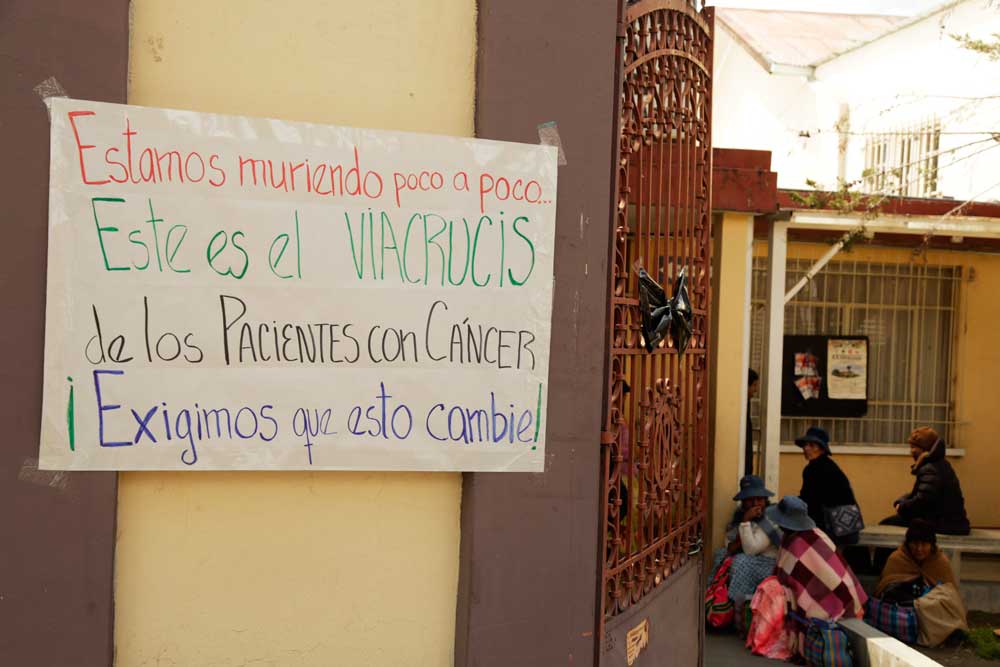 Estamos muriendo poco a poco...
Este es el VIACRUCIS
de los PACIENTES con CÁNCER
¡Exigimos que esto cambie!